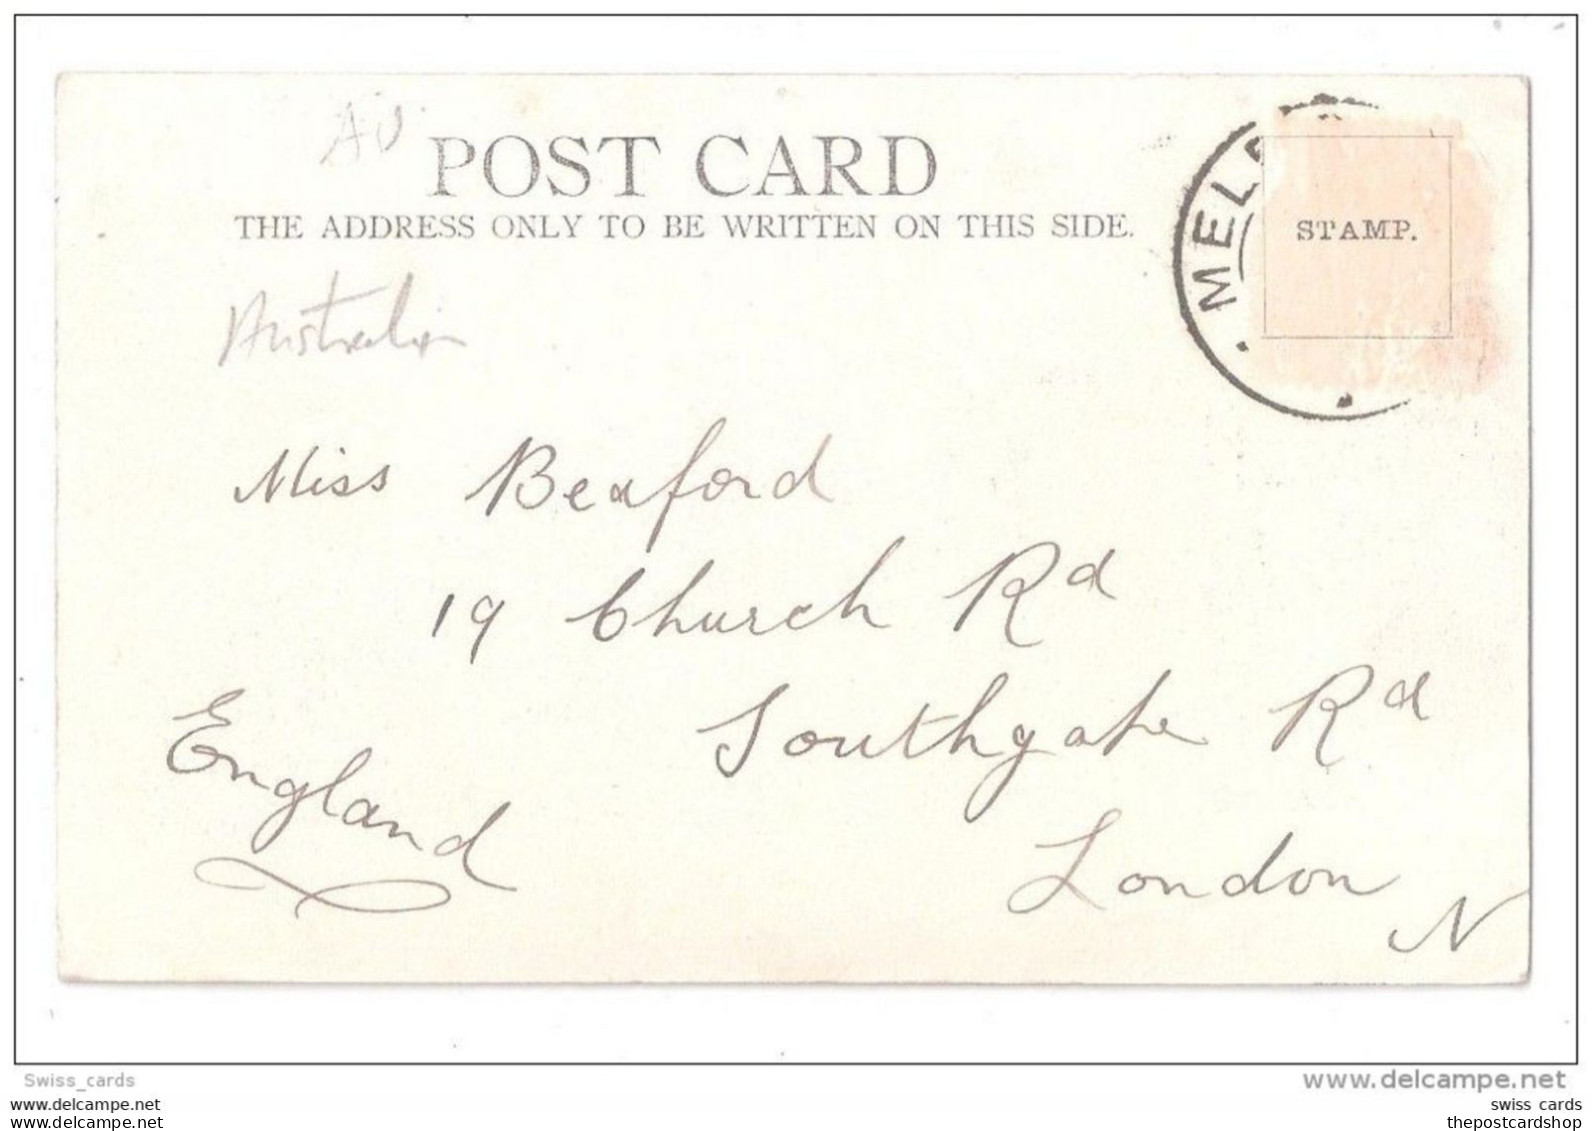 AU
POST CARD
THE ADDRESS ONLY TO BE WRITTEN ON THIS SIDE.
MEL
STAMP.
Australia
Miss Bexford
19 Church Rd
Southgate Rd
England
London
N
Swiss_cards
www.delcampe.net
www.delcampe.net
swiss cards
www.delcampe.net
thepostcardshop